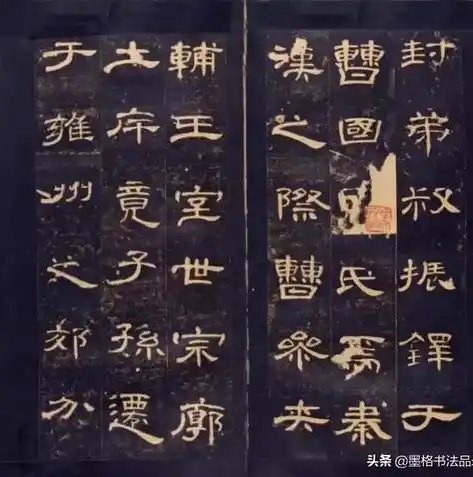 封弟叔振鐸于
曹國氏焉秦
漢之際曹參夾
輔王室世宗廓
土斥竟子孫遷
于雍州之郊分
头条 @墨格书法品